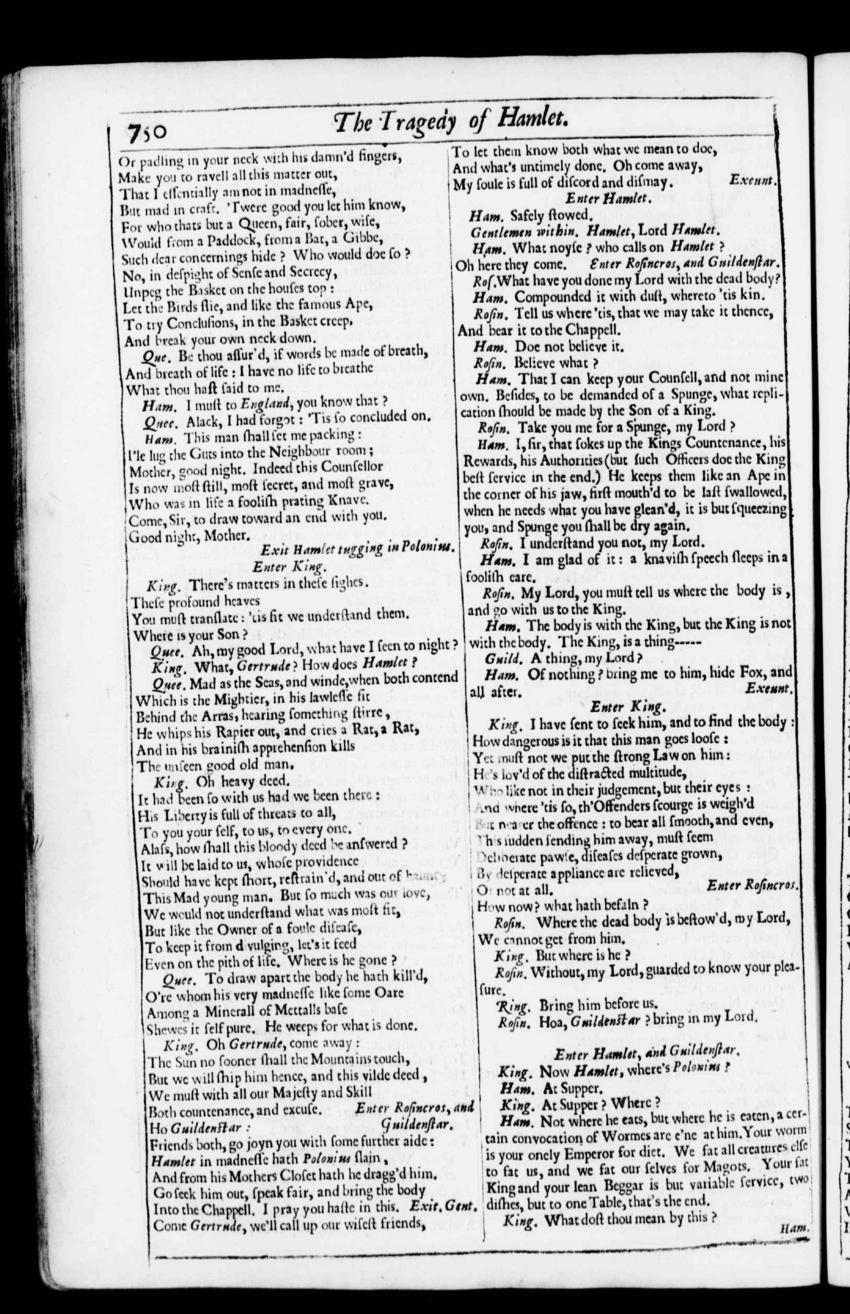 750
The Tragedy of Hamlet.
Or padling in your neck with his damn'd fingers,
Make you to ravell all this matter out,
That I essentially am not in madnesse,
But mad in craft. 'Twere good you let him know,
For who thats but a Queen, fair, sober, wise,
Would from a Paddock, from a Bat, a Gibbe,
Such dear concernings hide? Who would doe so?
No, in despight of Sense and Secrecy,
Unpeg the Basket on the houses top:
Let the Birds flie, and like the famous Ape,
To try Conclusions, in the Basket creep,
And break your own neck down.
Que. Be thou assur'd, if words be made of breath,
And breath of life: I have no life to breathe
What thou hast said to me.
Ham. I must to England, you know that?
Quee. Alack, I had forgot: 'Tis so concluded on.
Ham. This man shall set me packing:
I'le lug the Guts into the Neighbour room;
Mother, good night. Indeed this Counsellor
Is now most still, most secret, and most grave,
Who was in life a foolish prating Knave.
Come, Sir, to draw toward an end with you.
Good night, Mother.
Exit Hamlet tugging in Polonius.
Enter King.
King. There's matters in these sighes.
These profound heaves
You must translate: 'tis fit we understand them.
Where is your Son?
Quee. Ah, my good Lord, what have I seen to night?
King. What, Gertrude? How does Hamlet?
Quee. Mad as the Seas, and winde, when both contend
Which is the Mightier, in his lawlesse fit
Behind the Arras, hearing something stirre,
He whips his Rapier out, and cries a Rat, a Rat,
And in his brainish apprehension kills
The unseen good old man.
King. Oh heavy deed.
It had been so with us had we been there:
His Liberty is full of threats to all,
To you your self, to us, to every one.
Alass, how shall this bloody deed be answered?
It will be laid to us, whose providence
Should have kept short, restrain'd, and out of haunt,
This Mad young man. But so much was our love,
We would not understand what was most fit,
But like the Owner of a foule disease,
To keep it from d vulging, let's it feed
Even on the pith of life. Where is he gone?
Quee. To draw apart the body he hath kill'd,
O're whom his very madnesse like some Oare
Among a Minerall of Mettalls base
Shewes it self pure. He weeps for what is done.
King. Oh Gertrude, come away:
The Sun no sooner shall the Mountains touch,
But we will ship him hence, and this vilde deed,
We must with all our Majesty and Skill
Both countenance, and excuse. Enter Rosincros, and
Ho Guildenstar: Guildenstar.
Friends both, go joyn you with some further aide:
Hamlet in madnesse hath Polonius slain,
And from his Mothers Closet hath he dragg'd him.
Go seek him out, speak fair, and bring the body
Into the Chappell. I pray you haste in this. Exit. Gent.
Come Gertrude, we'll call up our wisest friends,
To let them know both what we mean to doe,
And what's untimely done. Oh come away,
My soule is full of discord and dismay. Exeunt.
Enter Hamlet.
Ham. Safely stowed.
Gentlemen within. Hamlet, Lord Hamlet.
Ham. What noyse? who calls on Hamlet?
Oh here they come. Enter Rosincros, and Guildenstar.
Ros. What have you done my Lord with the dead body?
Ham. Compounded it with dust, whereto 'tis kin.
Rosin. Tell us where 'tis, that we may take it thence,
And bear it to the Chappell.
Ham. Doe not believe it.
Rosin. Believe what?
Ham. That I can keep your Counsell, and not mine
own. Besides, to be demanded of a Spunge, what repli-
cation should be made by the Son of a King.
Rosin. Take you me for a Spunge, my Lord?
Ham. I, sir, that sokes up the Kings Countenance, his
Rewards, his Authorities (but such Officers doe the King
best service in the end.) He keeps them like an Ape in
the corner of his jaw, first mouth'd to be last swallowed,
when he needs what you have glean'd, it is but squeezing
you, and Spunge you shall be dry again.
Rosin. I understand you not, my Lord.
Ham. I am glad of it: a knavish speech sleeps in a
foolish eare.
Rosin. My Lord, you must tell us where the body is,
and go with us to the King.
Ham. The body is with the King, but the King is not
with the body. The King, is a thing-----
Guild. A thing, my Lord?
Ham. Of nothing? bring me to him, hide Fox, and
all after. Exeunt.
Enter King.
King. I have sent to seek him, and to find the body:
How dangerous is it that this man goes loose:
Yet must not we put the strong Law on him:
He's lov'd of the distracted multitude,
Who like not in their judgement, but their eyes:
And where 'tis so, th'Offenders scourge is weigh'd
But nearer the offence: to bear all smooth, and even,
This sudden sending him away, must seem
Deliberate pawse, diseases desperate grown,
By desperate appliance are relieved,
Or not at all. Enter Rosincros.
How now? what hath befaln?
Rosin. Where the dead body is bestow'd, my Lord,
We cannot get from him.
King. But where is he?
Rosin. Without, my Lord, guarded to know your plea-
sure.
Ring. Bring him before us.
Rosin. Hoa, Guildenstar? bring in my Lord.
Enter Hamlet, and Guildenstar.
King. Now Hamlet, where's Polonius?
Ham. At Supper.
King. At Supper? Where?
Ham. Not where he eats, but where he is eaten, a cer-
tain convocation of Wormes are e'ne at him. Your worm
is your onely Emperor for diet. We fat all creatures else
to fat us, and we fat our selves for Magots. Your fat
King and your lean Beggar is but variable service, two
dishes, but to one Table, that's the end.
King. What dost thou mean by this?
Ham.